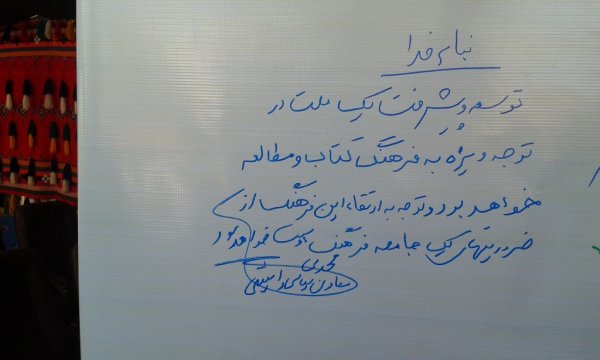 بنام خدا
توسعه و پیشرفت یک ملت در
توجه ویژه به فرهنگ کتاب و مطالعه
خواهد بود و توجه به ارتقاء این فرهنگ از
ضرورتهای یک جامعه فرهنگ خواهد بود
محمدی
معاون